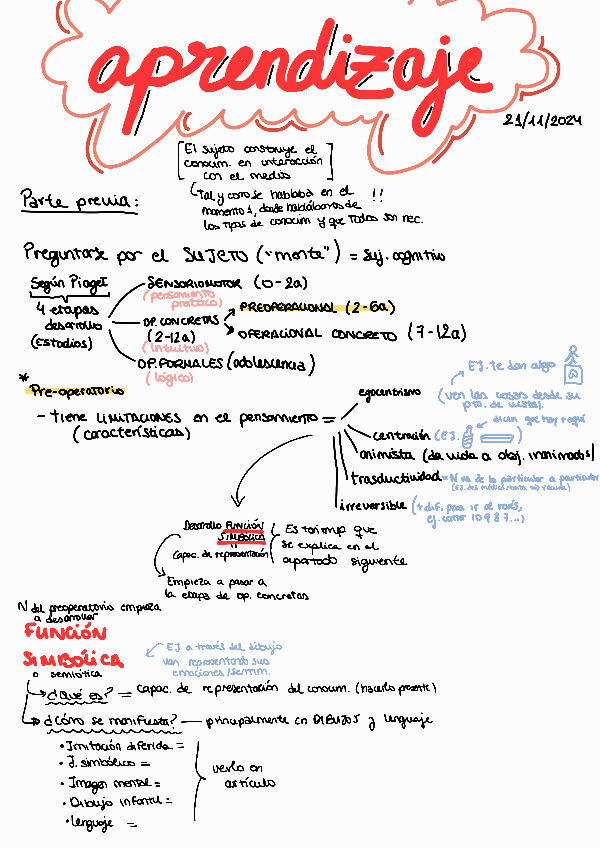 aprendizaje
21/11/2024
[El sujeto construye el
conocim. en interacción
con el medio]
(Tal y como se hablaba en el !!
momento 1, donde hablábamos de
los tipos de conocim y que todos son nec.
Parte previa:
Preguntarse por el SUJETO ("menta") = Suj. cognitivo
Según Piaget
4 etapas
desarrollo
(Estadios)
SENSORIOMOTOR (0-2a)
(pensamiento
práctico)
OP. CONCRETAS
(2-12a)
(intuitivo)
PREOPERACIONAL (2-6a)
OPERACIONAL CONCRETO (7-12a)
OP. FORMALES (adolescencia)
(lógico)
* Pre-operatorio
- tiene LIMITACIONES en el pensamiento =
(características)
egocentrismo
EJ. te dan algo
(ven las cosas desde su
pto. de vista)
centración (EJ.
dicen que hay + aquí
animista (da vida a obj. inanimados)
trasductividad = N va de lo particular a particular
irreversible (+ dif. para ir al revés,
ej. contar 10 9 8 7...)
Desarrollo FUNCIÓN
SIMBÓLICA
capac. de representación
Es tan imp que
se explica en el
apartado siguiente
Empieza a pasar a
la etapa de op. concretas
N del preoperatorio empieza
a desarrollar
FUNCIÓN
SIMBÓLICA
o semiótica
EJ a través del dibujo
van representando sus
emociones/sentim.
¿Qué es? = capac. de representación del conocim. (hacerlo presente)
¿Cómo se manifiesta? — principalmente en DIBUJOS y lenguaje
• Imitación diferida =
• J. simbólico =
• Imagen mental =
• Dibujo infantil =
• Lenguaje =
verlo en
artículo